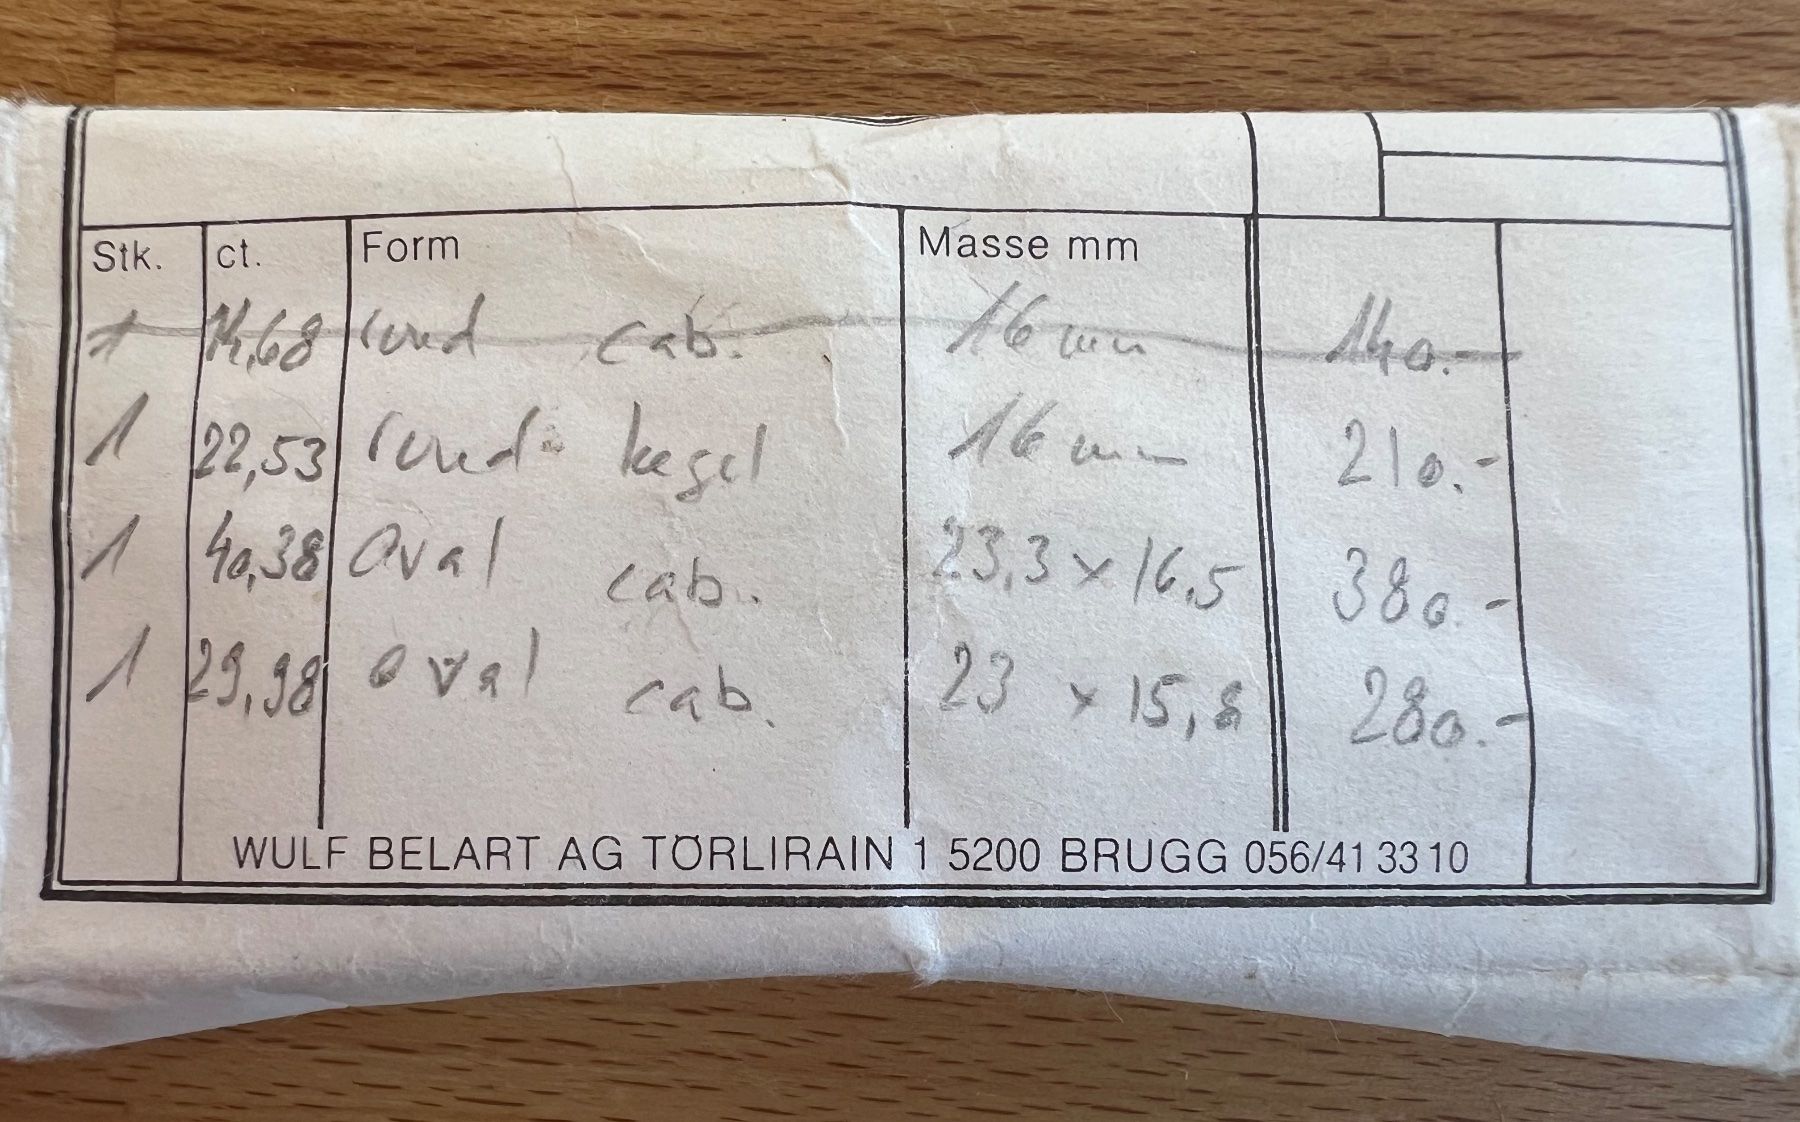 Stk. ct. Form Masse mm
1 14,68 rund cab. 16 mm 140.-
1 22,53 rund- kegel 16 mm 210.-
1 40,38 Oval cab. 23,3 x 16.5 380.-
1 29,98 oval cab. 23 x 15,8 280.-
WULF BELART AG TÖRLIRAIN 1 5200 BRUGG 056/41 33 10